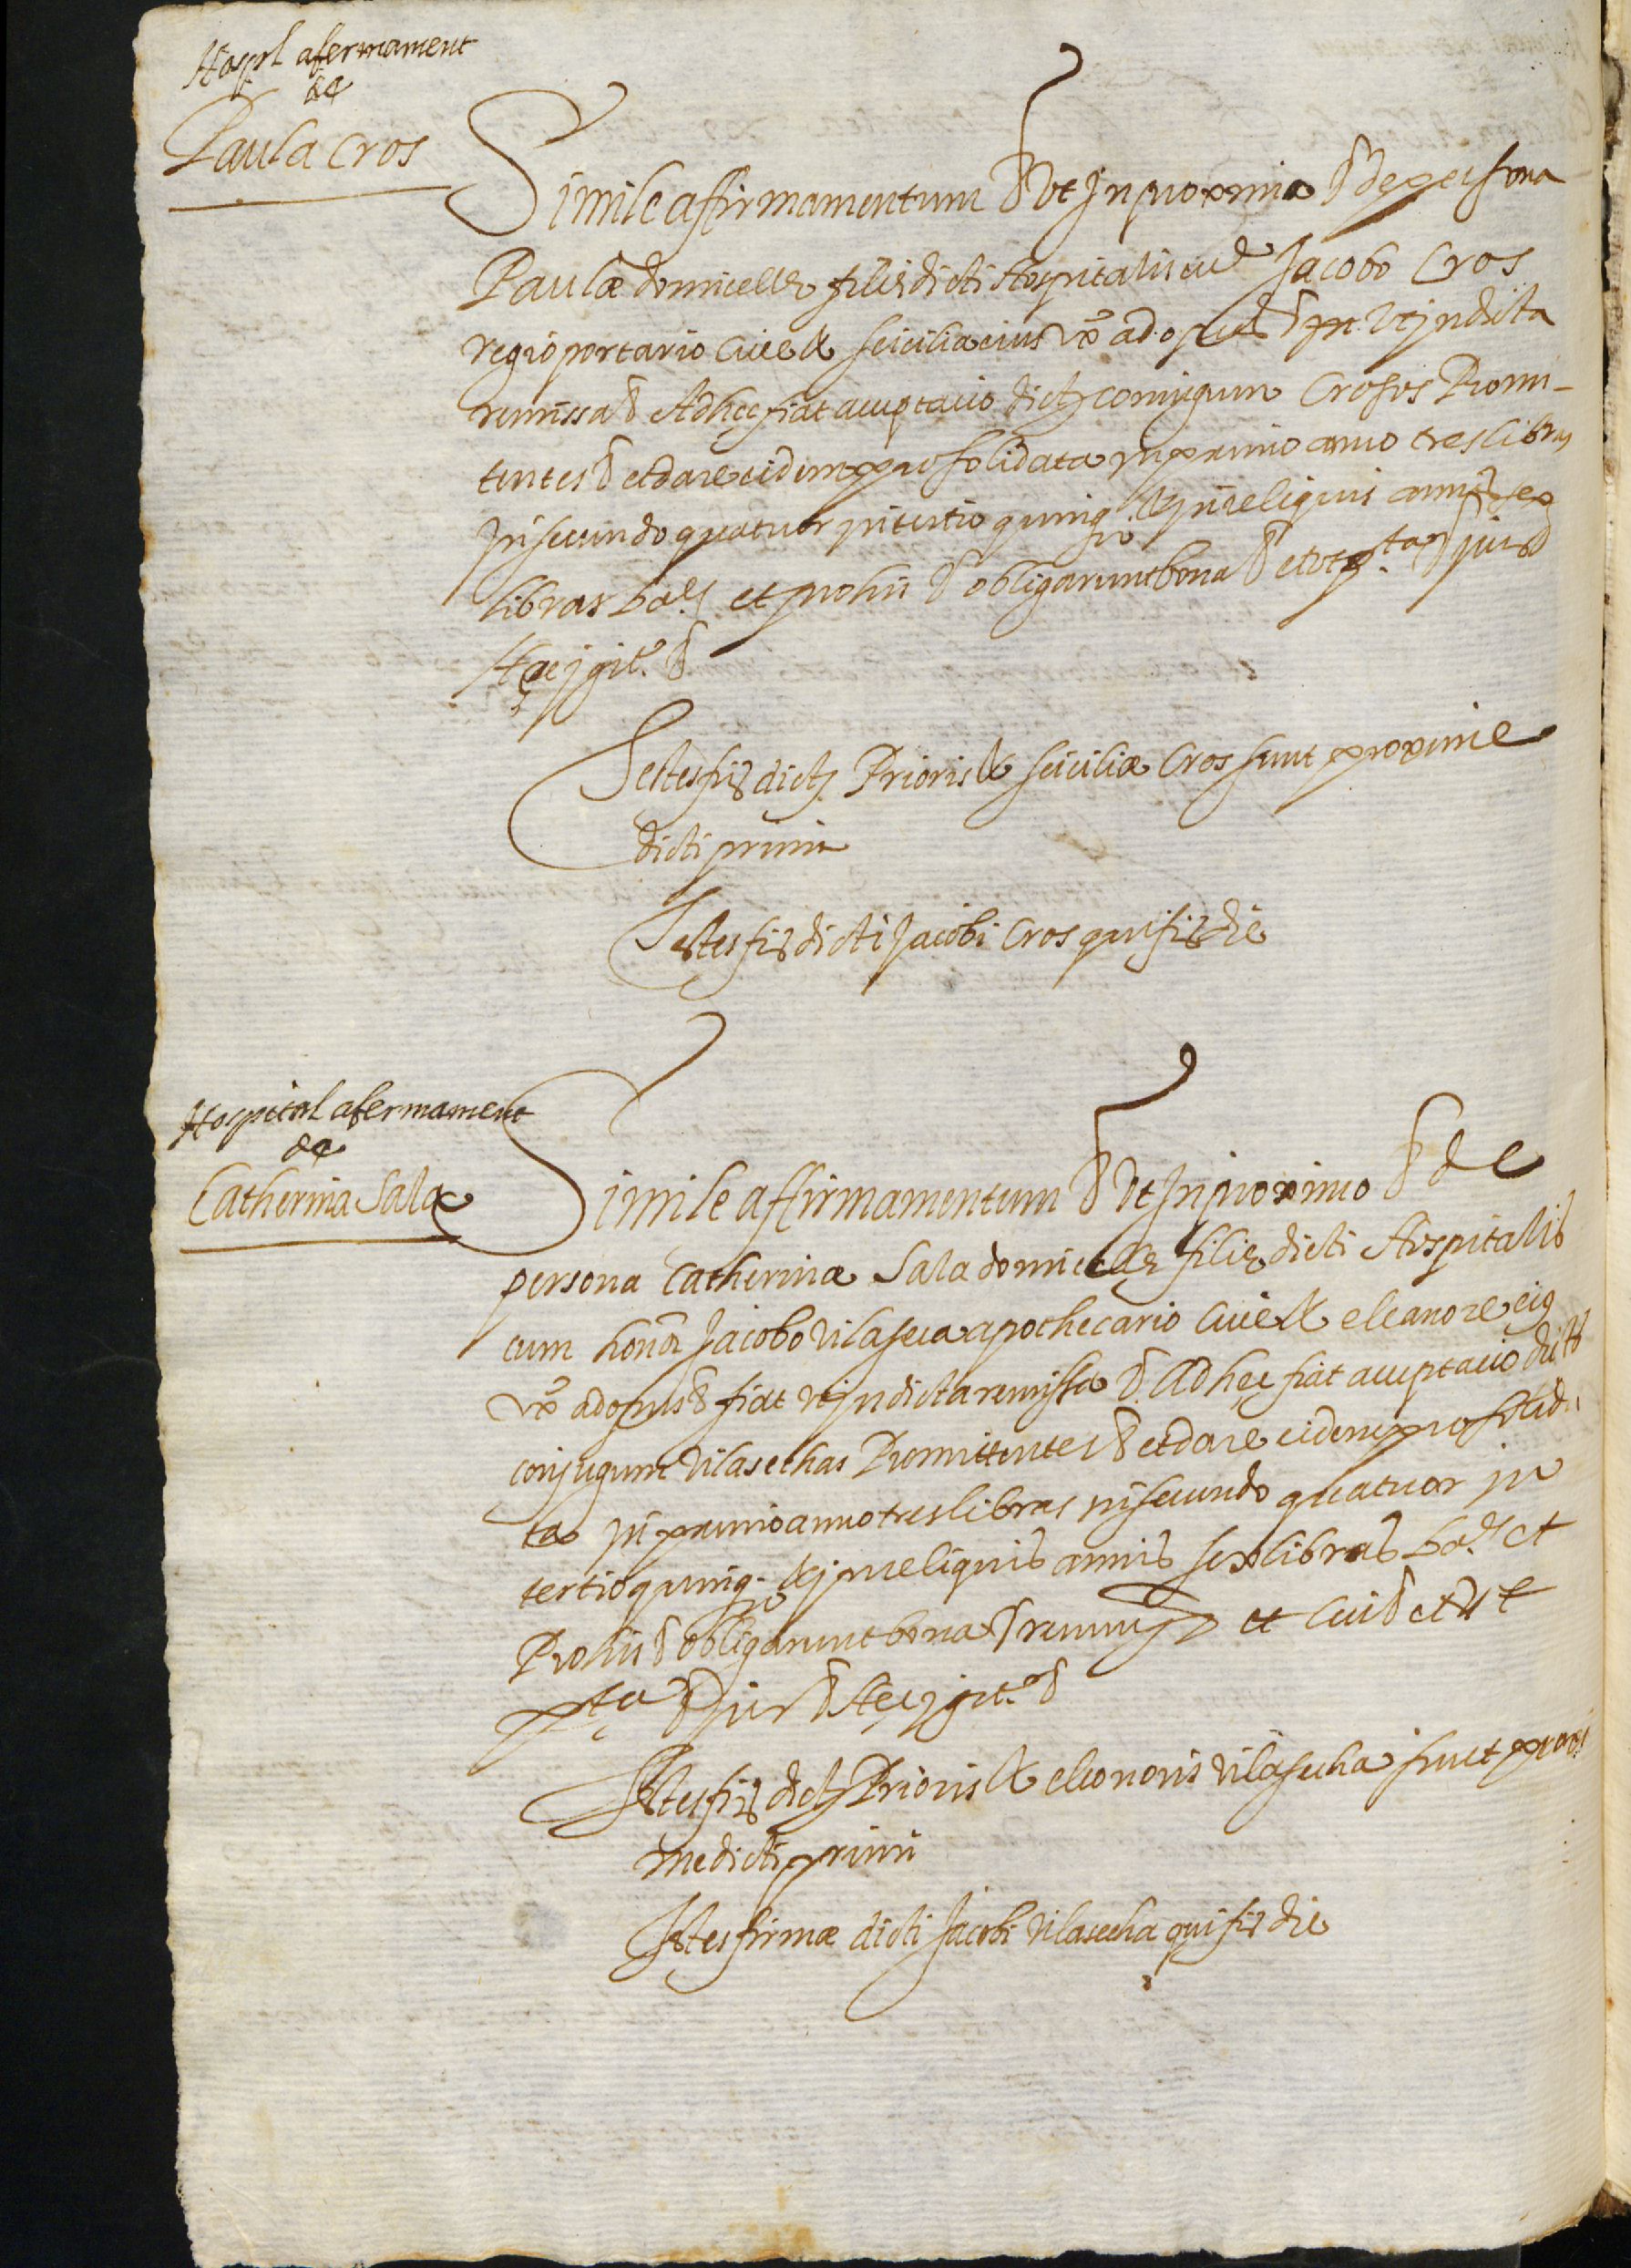 Hospl afermament
de
Paula Cros
Simile affirmamentum & Ut In proximo & de persona
Paulæ domicelle filie dicti Hospitalis cu Jacobo Cros
regio portario Cive & seicilia eius ux ad opus & ut in dicta
remissa & Ad hec fiat acceptacio dict conjugum Crosos Promi-
tentes & et dare eidem pro solidata in primo anno tres libras
in secundo quatuor in tertio quinq & in reliquis annis sex
libras et prohis & obligarunt bona & et
Hec igit &
Testes fir dict Prioris & seiciliæ Cros sunt proxime
dicti primi
Testes fir dicti Jacobi Cros qui fir die
Hospital afermament
de
Catherina Sala
Simile affirmamentum & Ut In proximo & de
persona Catherinæ Sala domicelle filie dicti Hospitalis
cum hono Jacobo Vilaseca apothecario Cive & eleanore eius
ux ad opus & fiat ut in dicta remissa & Ad hec fiat acceptacio dict
conjugum Vilasechas Promittentes & et dare eidem pro solida
ta in primo anno tres libras in secundo quatuor in
tertio quinq & in reliquis annis sex libras et
Prohis & obligarunt bona & et
& jur & Hec igit &
Testes fir dict Prioris & eleonoris Vilasecha sunt proxi
me dicti primi
Testes firmæ dicti Jacobi Vilasecha qui fir die